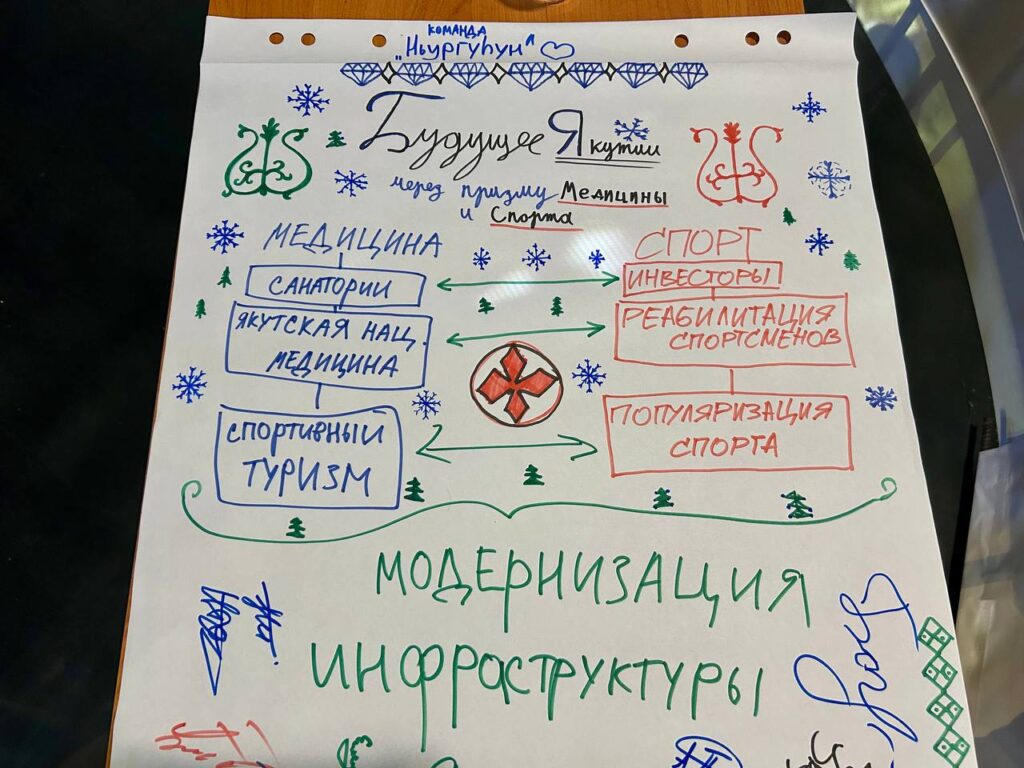 КОМАНДА
"Ньургуһун"
Будущее Якутии
через призму Медицины
и Спорта
МЕДИЦИНА
САНАТОРИИ
ЯКУТСКАЯ НАЦ.
МЕДИЦИНА
СПОРТИВНЫЙ
ТУРИЗМ
СПОРТ
ИНВЕСТОРЫ
РЕАБИЛИТАЦИЯ
СПОРТСМЕНОВ
ПОПУЛЯРИЗАЦИЯ
СПОРТА
МОДЕРНИЗАЦИЯ
ИНФРАСТРУКТУРЫ